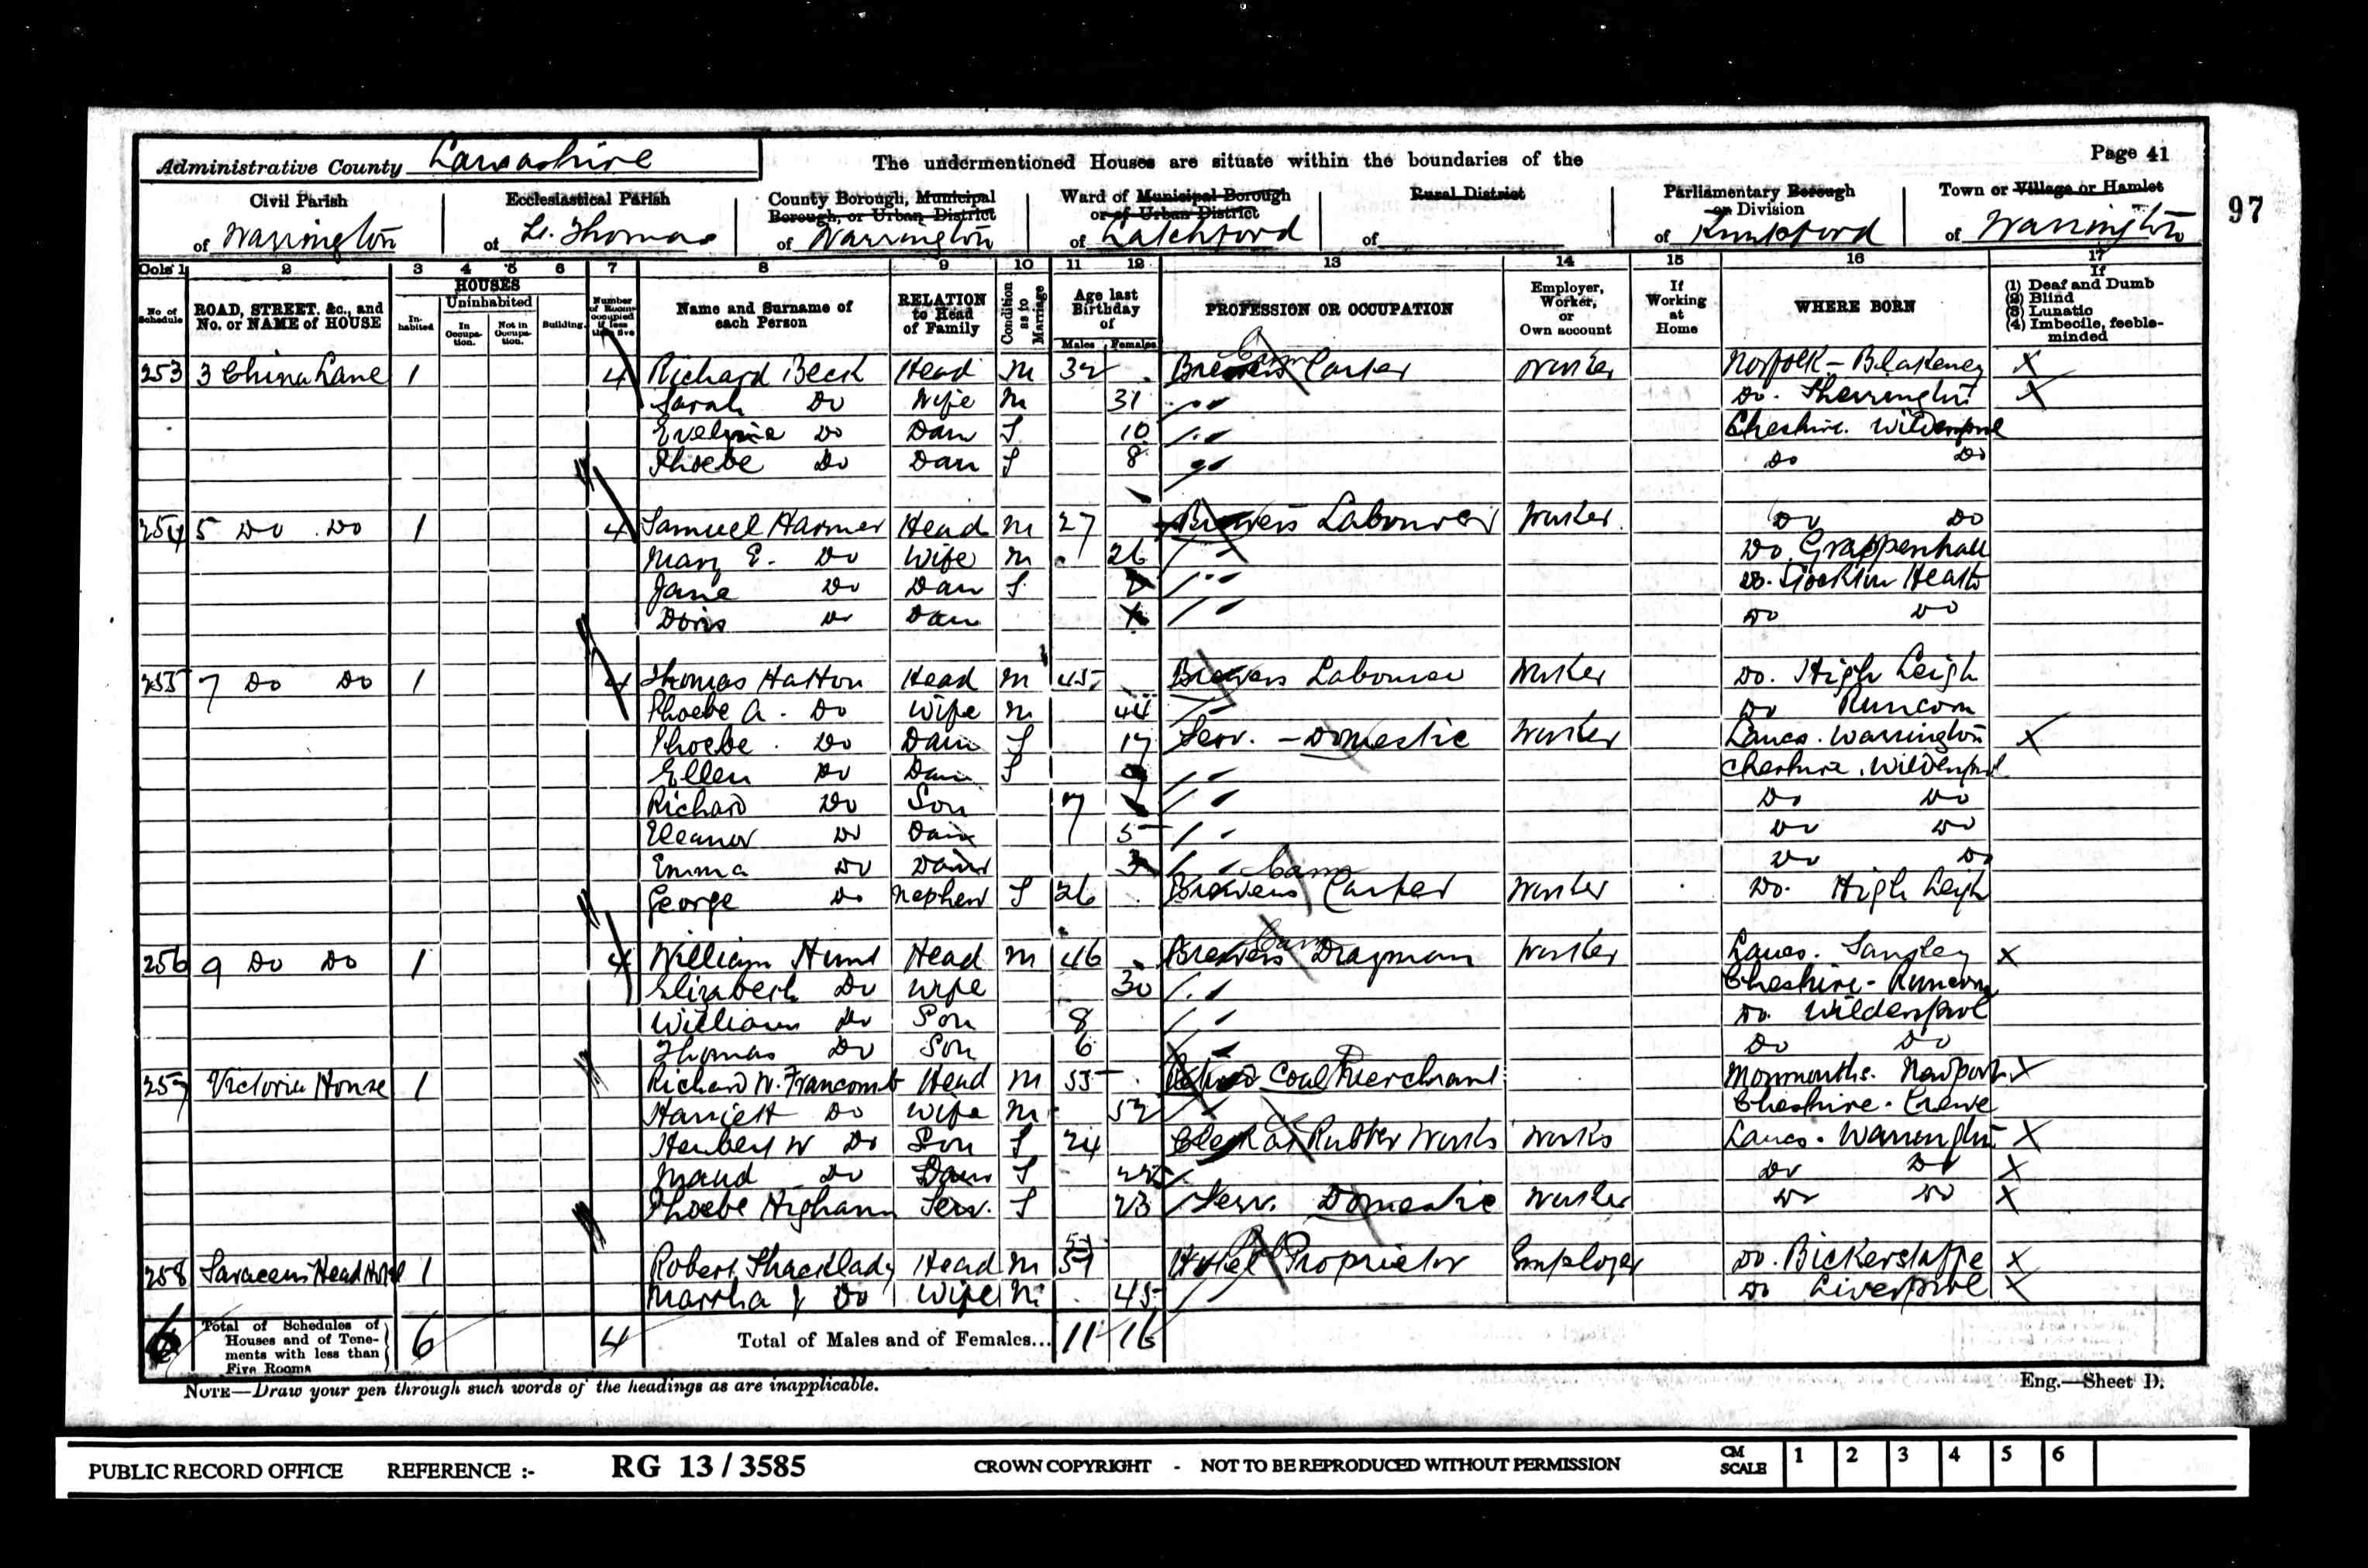 Administrative County Lancashire The undermentioned Houses are situate within the boundaries of the Page 41
Civil Parish of Warrington
Ecclesiastical Parish of St. Thomas
County Borough, Municipal Borough, or Urban District of Warrington
Ward of Municipal Borough or of Urban District of Latchford
Rural District of
Parliamentary Borough or Division of Knutsford
Town or Village or Hamlet of Warrington
97
Cols 1 2 3 4 5 6 7 8 9 10 11 12 13 14 15 16 17
No. of Schedule
ROAD, STREET, &c., and No. or NAME of HOUSE
HOUSES
Inhabited
Uninhabited
In Occupation.
Not in Occupation.
Building.
Number of Rooms occupied if less than five
Name and Surname of each Person
RELATION to Head of Family
Condition as to Marriage
Age last Birthday of
Males Females
PROFESSION OR OCCUPATION
Employer, Worker, or Own account
If Working at Home
WHERE BORN
If
(1) Deaf and Dumb
(2) Blind
(3) Lunatic
(4) Imbecile, feeble-minded
253 3 China Lane 1 4 Richard Beck Head M 32 Brewers Carter Worker Norfolk - Blakeney X
Sarah Do Wife M 31 Do. X
Do Dau S 10 Cheshire. Wilderspool
Phoebe Do Dau S 8 Do Do
254 5 Do Do 1 4 Samuel Harmer Head M 27 Brewers Labourer Worker Do Do
Mary E. Do Wife M 26 Do. Grappenhall
Jane Do Dau S. Do. Stockton Heath
Doris Do Dau Do Do
255 7 Do Do 1 4 Thomas Hatton Head M 45 Brewers Labourer Worker Do. High Leigh
Phoebe A. Do Wife M 44 Do Runcorn
Phoebe. Do Dau S 17 Serv. - Domestic Worker Lancs. Warrington X
Ellen Do Dau S Cheshire. Wilderspool
Richard Do Son 7 Do Do
Eleanor Do Dau 5 Do Do
Emma Do Dau 3 Do Do
George Do Nephew S 26 Brewers Carter Worker Do. High Leigh
256 9 Do Do 1 4 William Hunt Head M 46 Brewers Drayman Worker Lancs. Sankey X
Elizabeth Do Wife 30 Cheshire - Runcorn
William Do Son 8 Do. Wilderspool
Thomas Do Son 6 Do Do
257 Victoria House 1 Richard W. Francomb Head M 55 Retired Coal Merchant Monmouths. Newport X
Harriett Do Wife M 52 Cheshire. Crewe
Herbert W Do Son S 24 Clerk at Rubber Works Works Lancs. Warrington X
Maud Do Dau S 22 Do Do X
Phoebe Higham Serv. S 23 Serv. Domestic Worker Do Do X
258 Saracens Head Hotel 1 Robert Shacklady Head M Hotel Proprietor Employer Do. Bickerstaffe X
Martha J Do Wife M 45 Do Liverpool X
6 Total of Schedules of Houses and of Tenements with less than Five Rooms 6 4 Total of Males and of Females... 11 16
NOTE—Draw your pen through such words of the headings as are inapplicable. Eng.—Sheet D.
PUBLIC RECORD OFFICE REFERENCE :- RG 13 / 3585 CROWN COPYRIGHT - NOT TO BE REPRODUCED WITHOUT PERMISSION CM SCALE 1 2 3 4 5 6